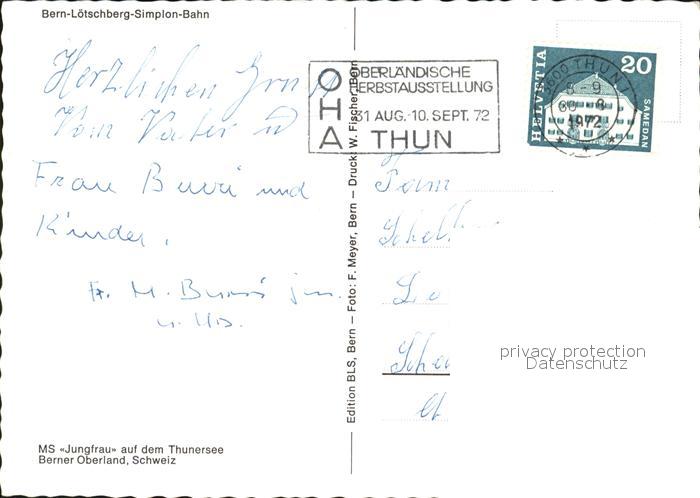 Bern-Lötschberg-Simplon-Bahn
Herzlichen Gruss
Vom Vater u
Frau Burri und
Kinder.
Fr. M. Burri jun.
MS «Jungfrau» auf dem Thunersee
Berner Oberland, Schweiz
Edition BLS, Bern – Foto: F. Meyer, Bern – Druck: W. Fischer, Bern
OHA
OBERLÄNDISCHE
HERBSTAUSSTELLUNG
31 AUG.-10. SEPT. 72
THUN
HELVETIA
20
SAMEDAN
3600 THUN 1
8-9
1972
Fam
Schell
privacy protection
Datenschutz